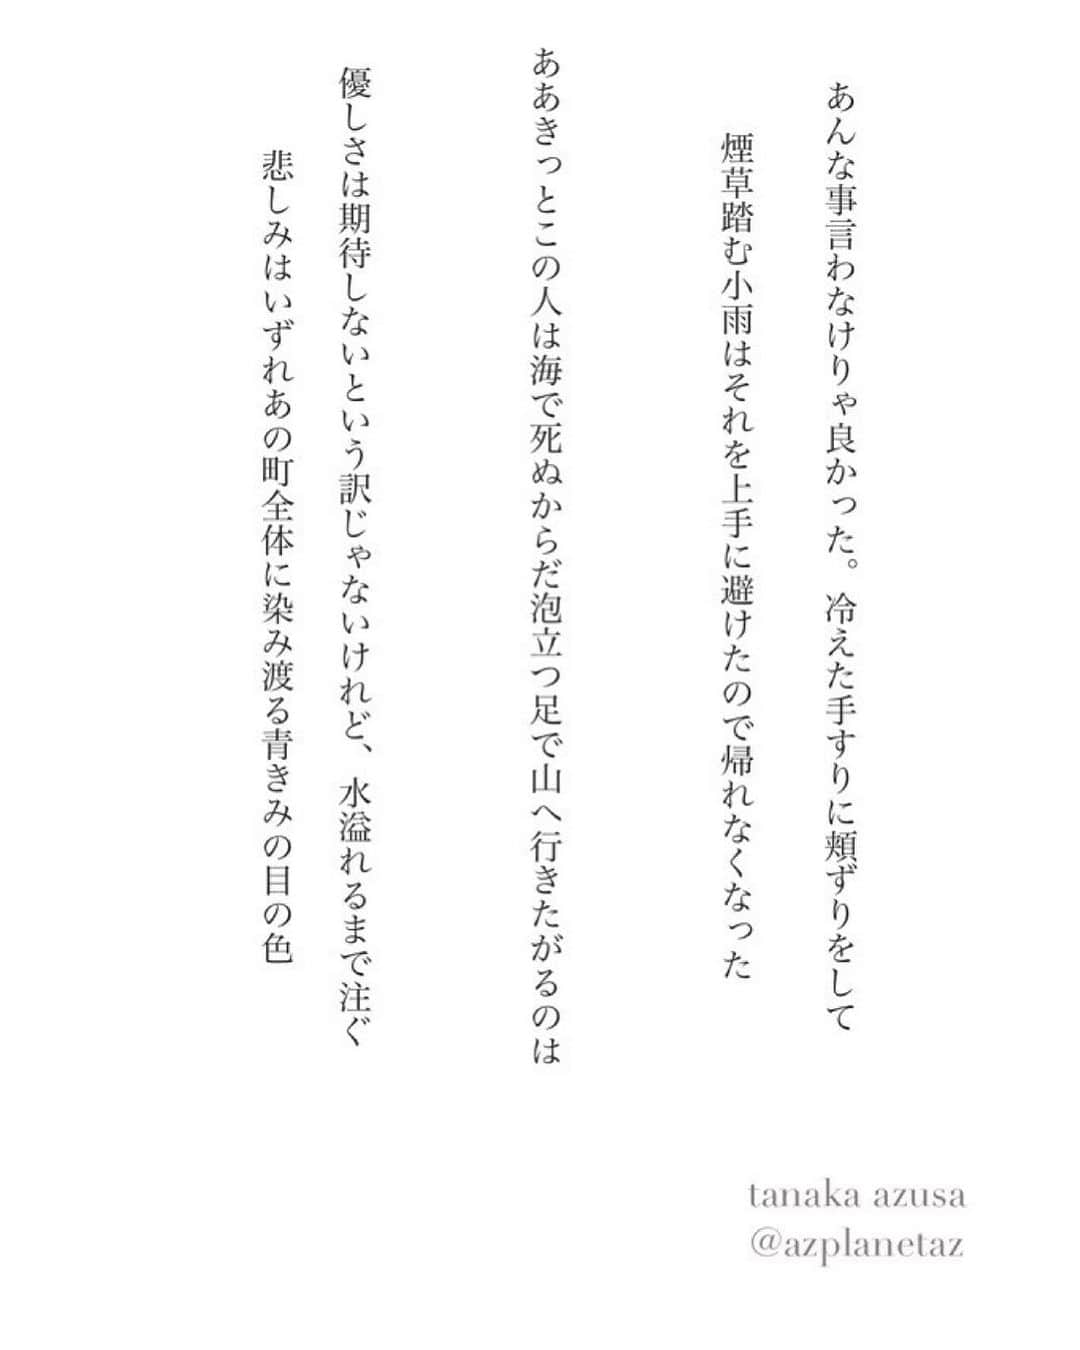 あんな事言わなけりゃ良かった。冷えた手すりに頬ずりをして
煙草踏む小雨はそれを上手に避けたので帰れなくなった
ああきっとこの人は海で死ぬからだ泡立つ足で山へ行きたがるのは
優しさは期待しないという訳じゃないけれど、水溢れるまで注ぐ
悲しみはいずれあの町全体に染み渡る青きみの目の色
tanaka azusa
@azplanetaz